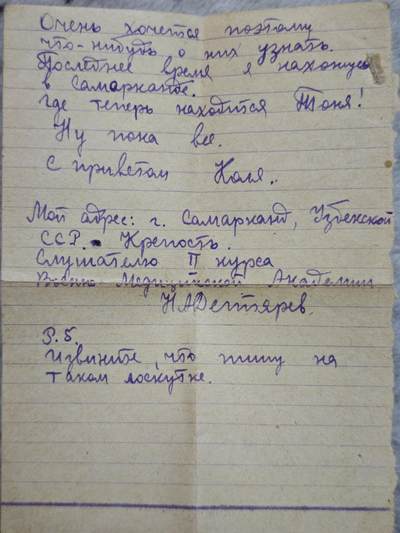 Очень хочется поэтому
что-нибудь о них узнать.
Последнее время я нахожусь
в Самарканде.
Где теперь находится Тоня!
Ну пока все.
С приветом Коля.
Мой адрес: г. Самарканд, Узбекской
ССР. Крепость.
Слушателю II курса
Военно Медицинской Академии
Н А Дегтярев.
P.S.
Извините, что пишу на
таком лоскутке.